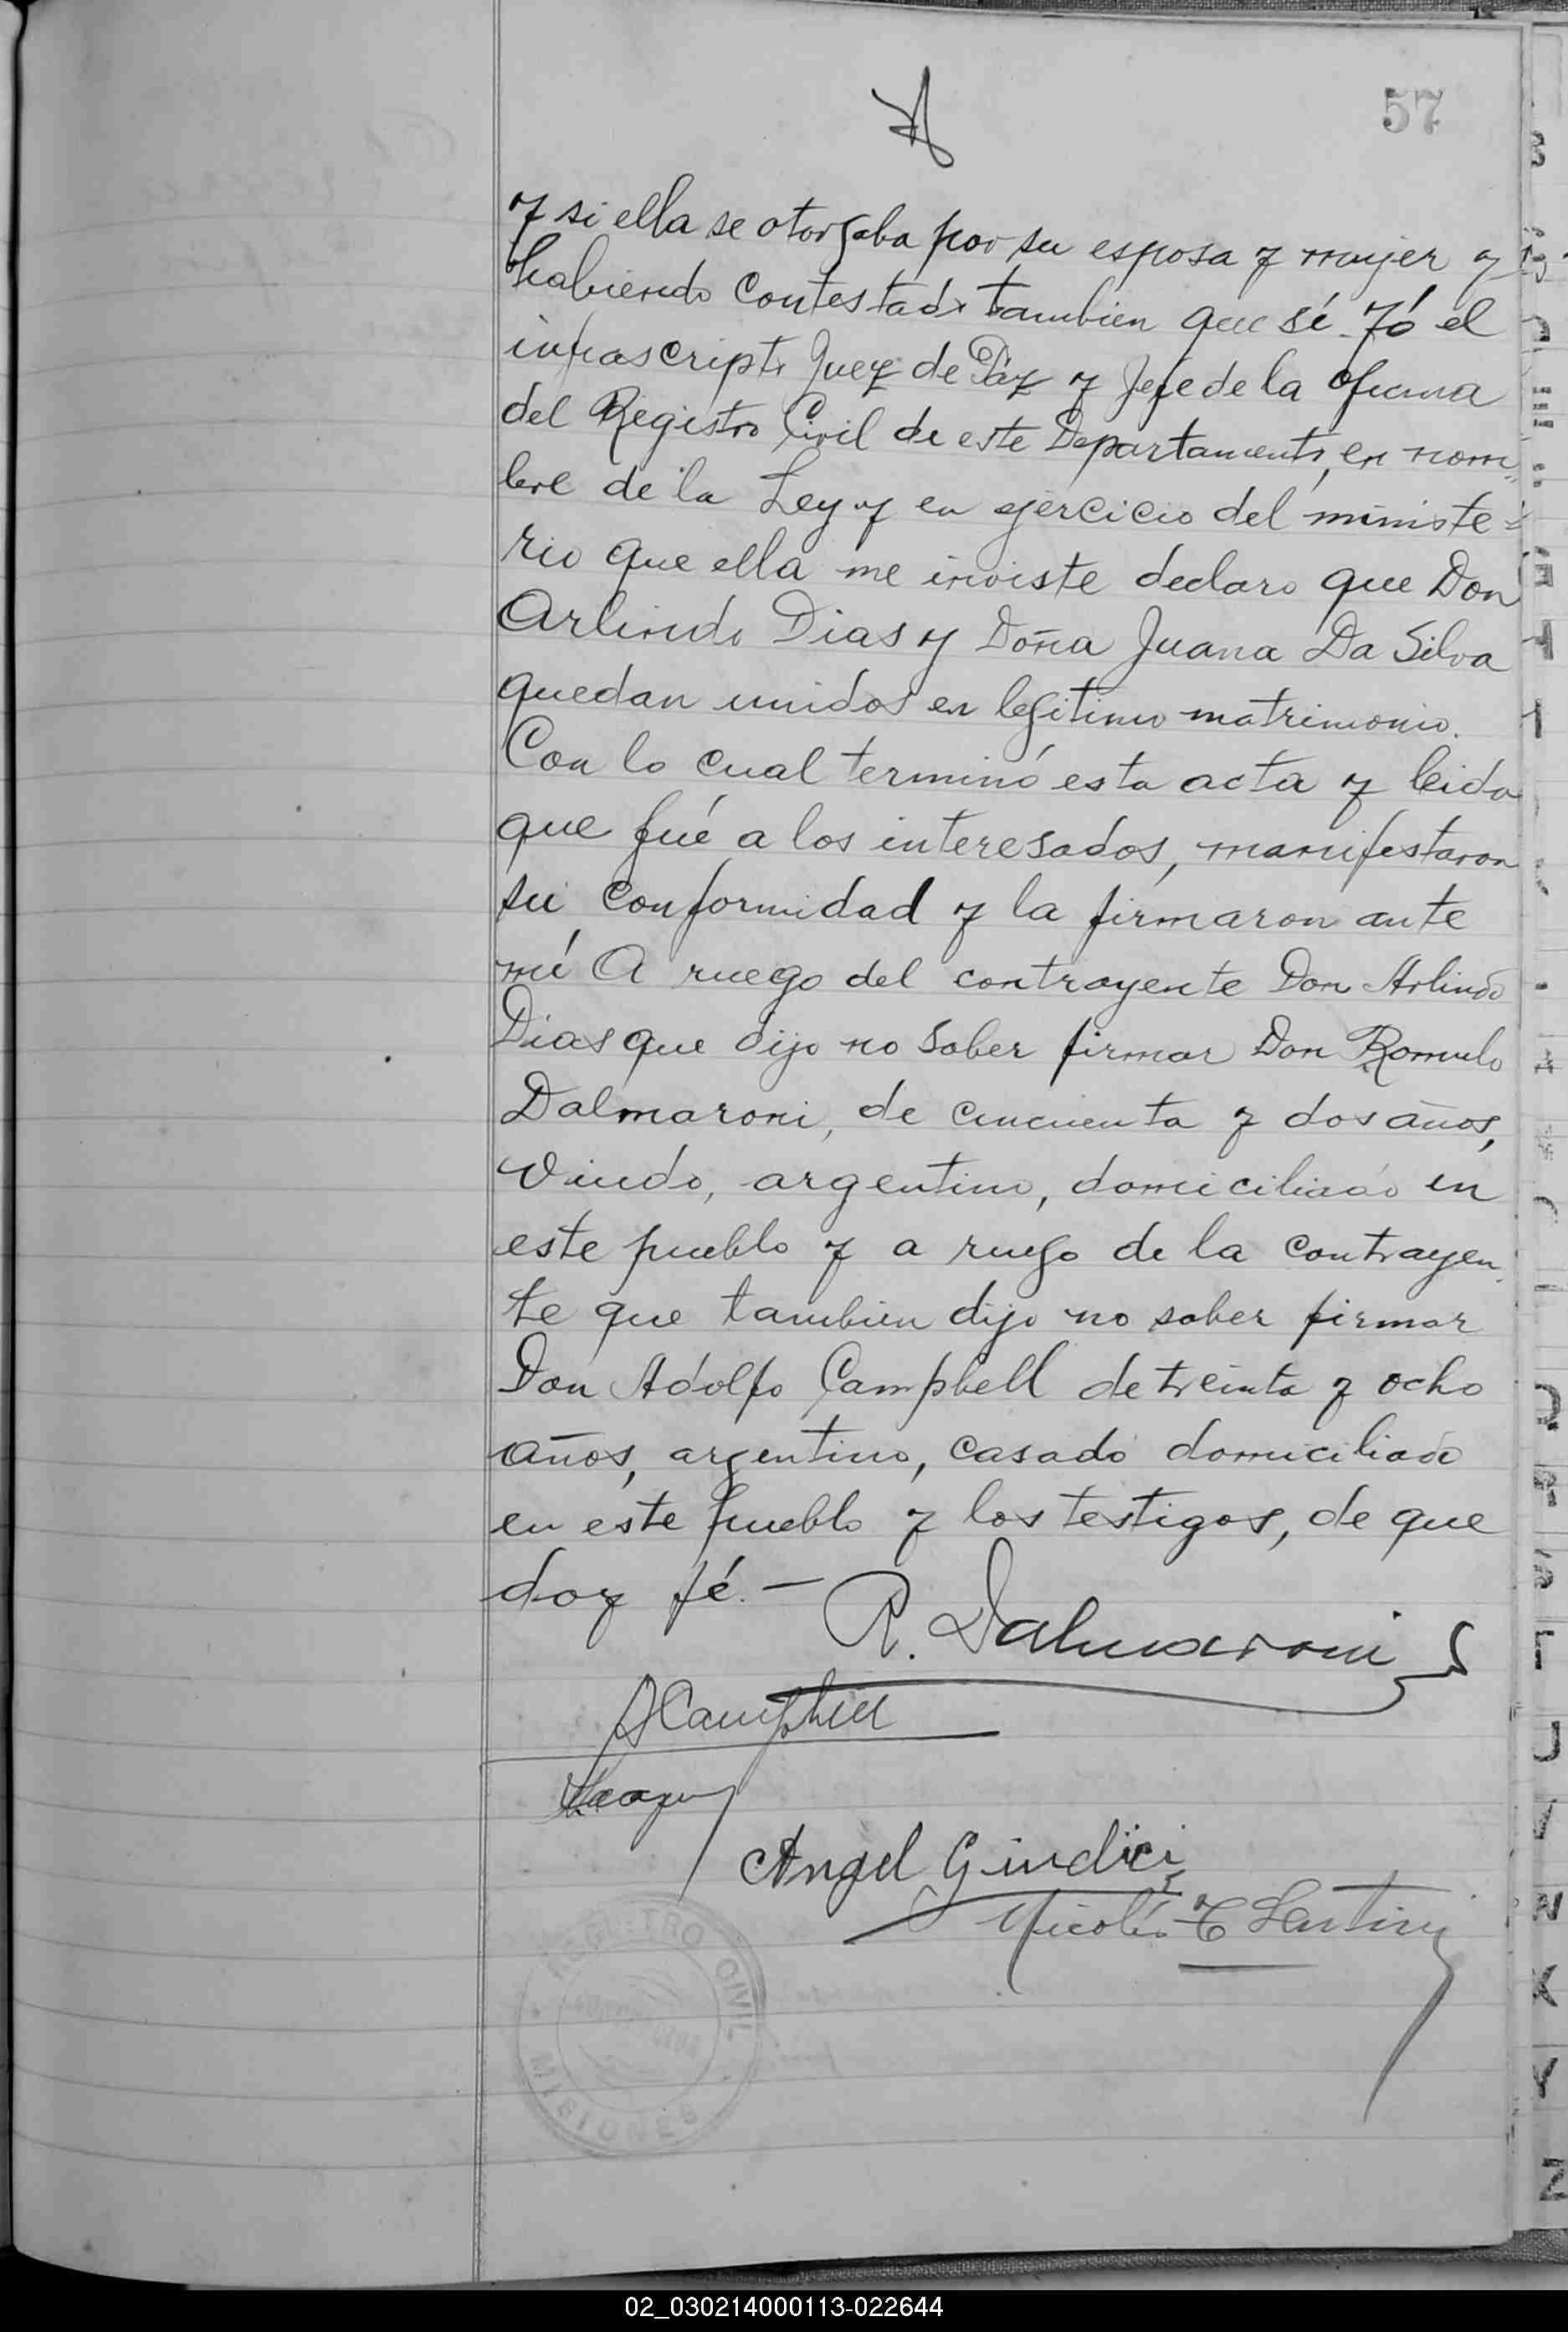 57
y si ella se otorgaba por su esposa y mujer y
habiendo contestado tambien que sí. Yó el
infrascripto Juez de Páz y Jefe de la Oficina
del Registro Civil de este Departamento, en nom
bre de la Ley y en ejercicio del ministe=
rio que ella me inviste declaro que Don
Arlindo Dias y Doña Juana Da Silva
quedan unidos en legitimo matrimonio.
Con lo cual terminó esta acta y leida
que fué a los interesados, manifestaron
su conformidad y la firmaron ante
mí A ruego del contrayente Don Arlindo
Dias que dijo no saber firmar Don Romulo
Dalmaroni, de cincuenta y dos años,
viudo, argentino, domiciliado en
este pueblo y a ruego de la contrayen
te que tambien dijo no saber firmar
Don Adolfo Campbell de treinta y ocho
años, argentino, casado domiciliado
en este pueblo y los testigos, de que
doy fé. —
R. Dalmaroni
A Campbell
Angel Giudici
Nicolás
REGISTRO CIVIL
MISIONES
02_030214000113-022644